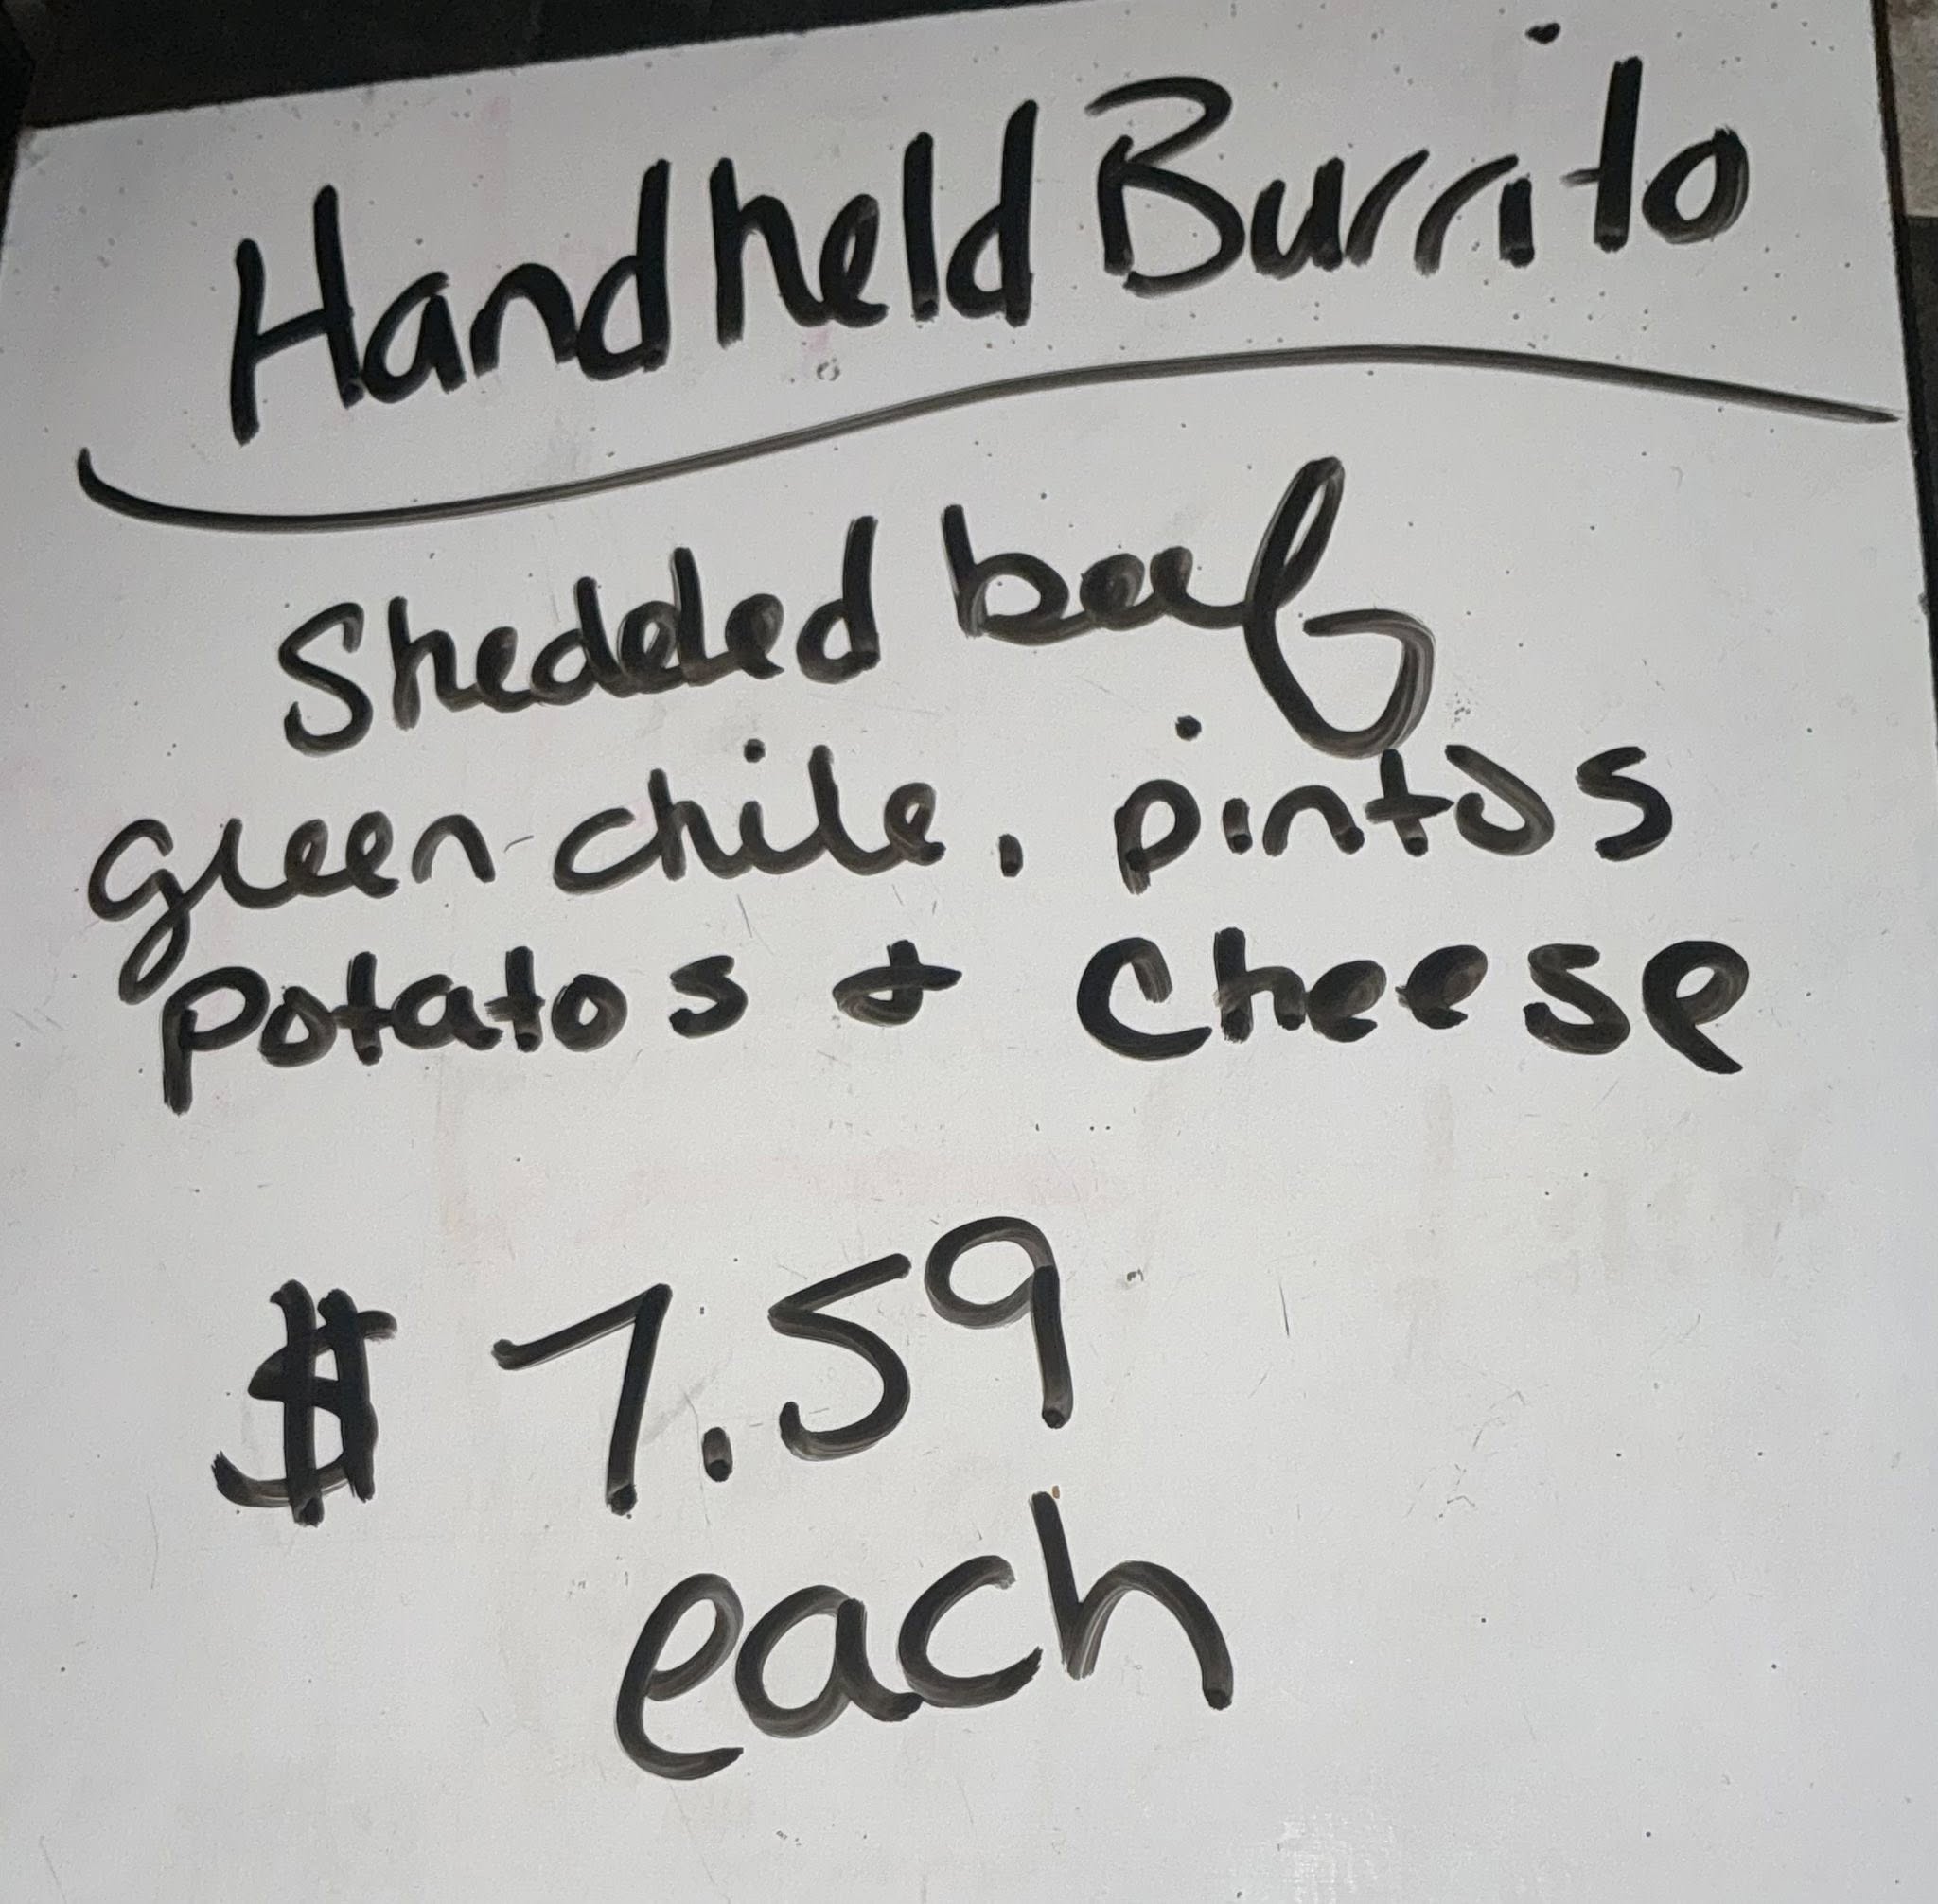 Handheld Burrito
Shedded beef
green chile, pintos
Potatos & Cheese
$ 7.59
each